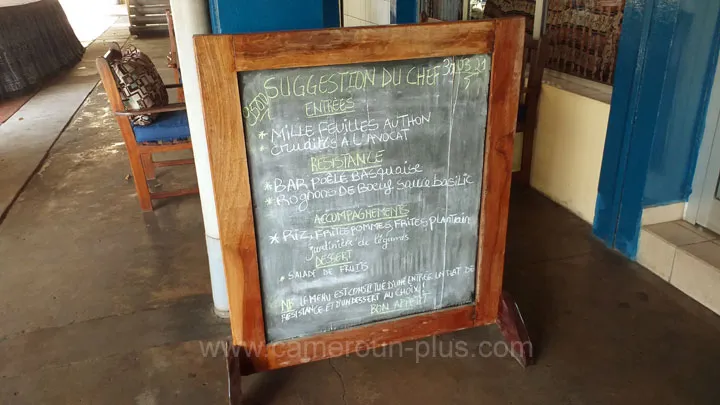 SUGGESTION DU CHEF
ENTRÉES
* MILLE FEUILLES AU THON
CRUDITÉS À L'AVOCAT
RESISTANCE
* BAR POÊLÉ BASQUAISE
* Rognons DE Boeuf sauce basilic
ACCOMPAGNEMENTS
* Riz, FRITES POMMES, FRITES plantain
jardinière de légumes
DESSERT
* SALADE DE FRUITS
NB LE MENU EST CONSTITUÉ D'UNE ENTRÉE UN PLAT DE
RESISTANCE ET D'UN DESSERT AU CHOIX!
BON APPETIT
www.cameroun-plus.com